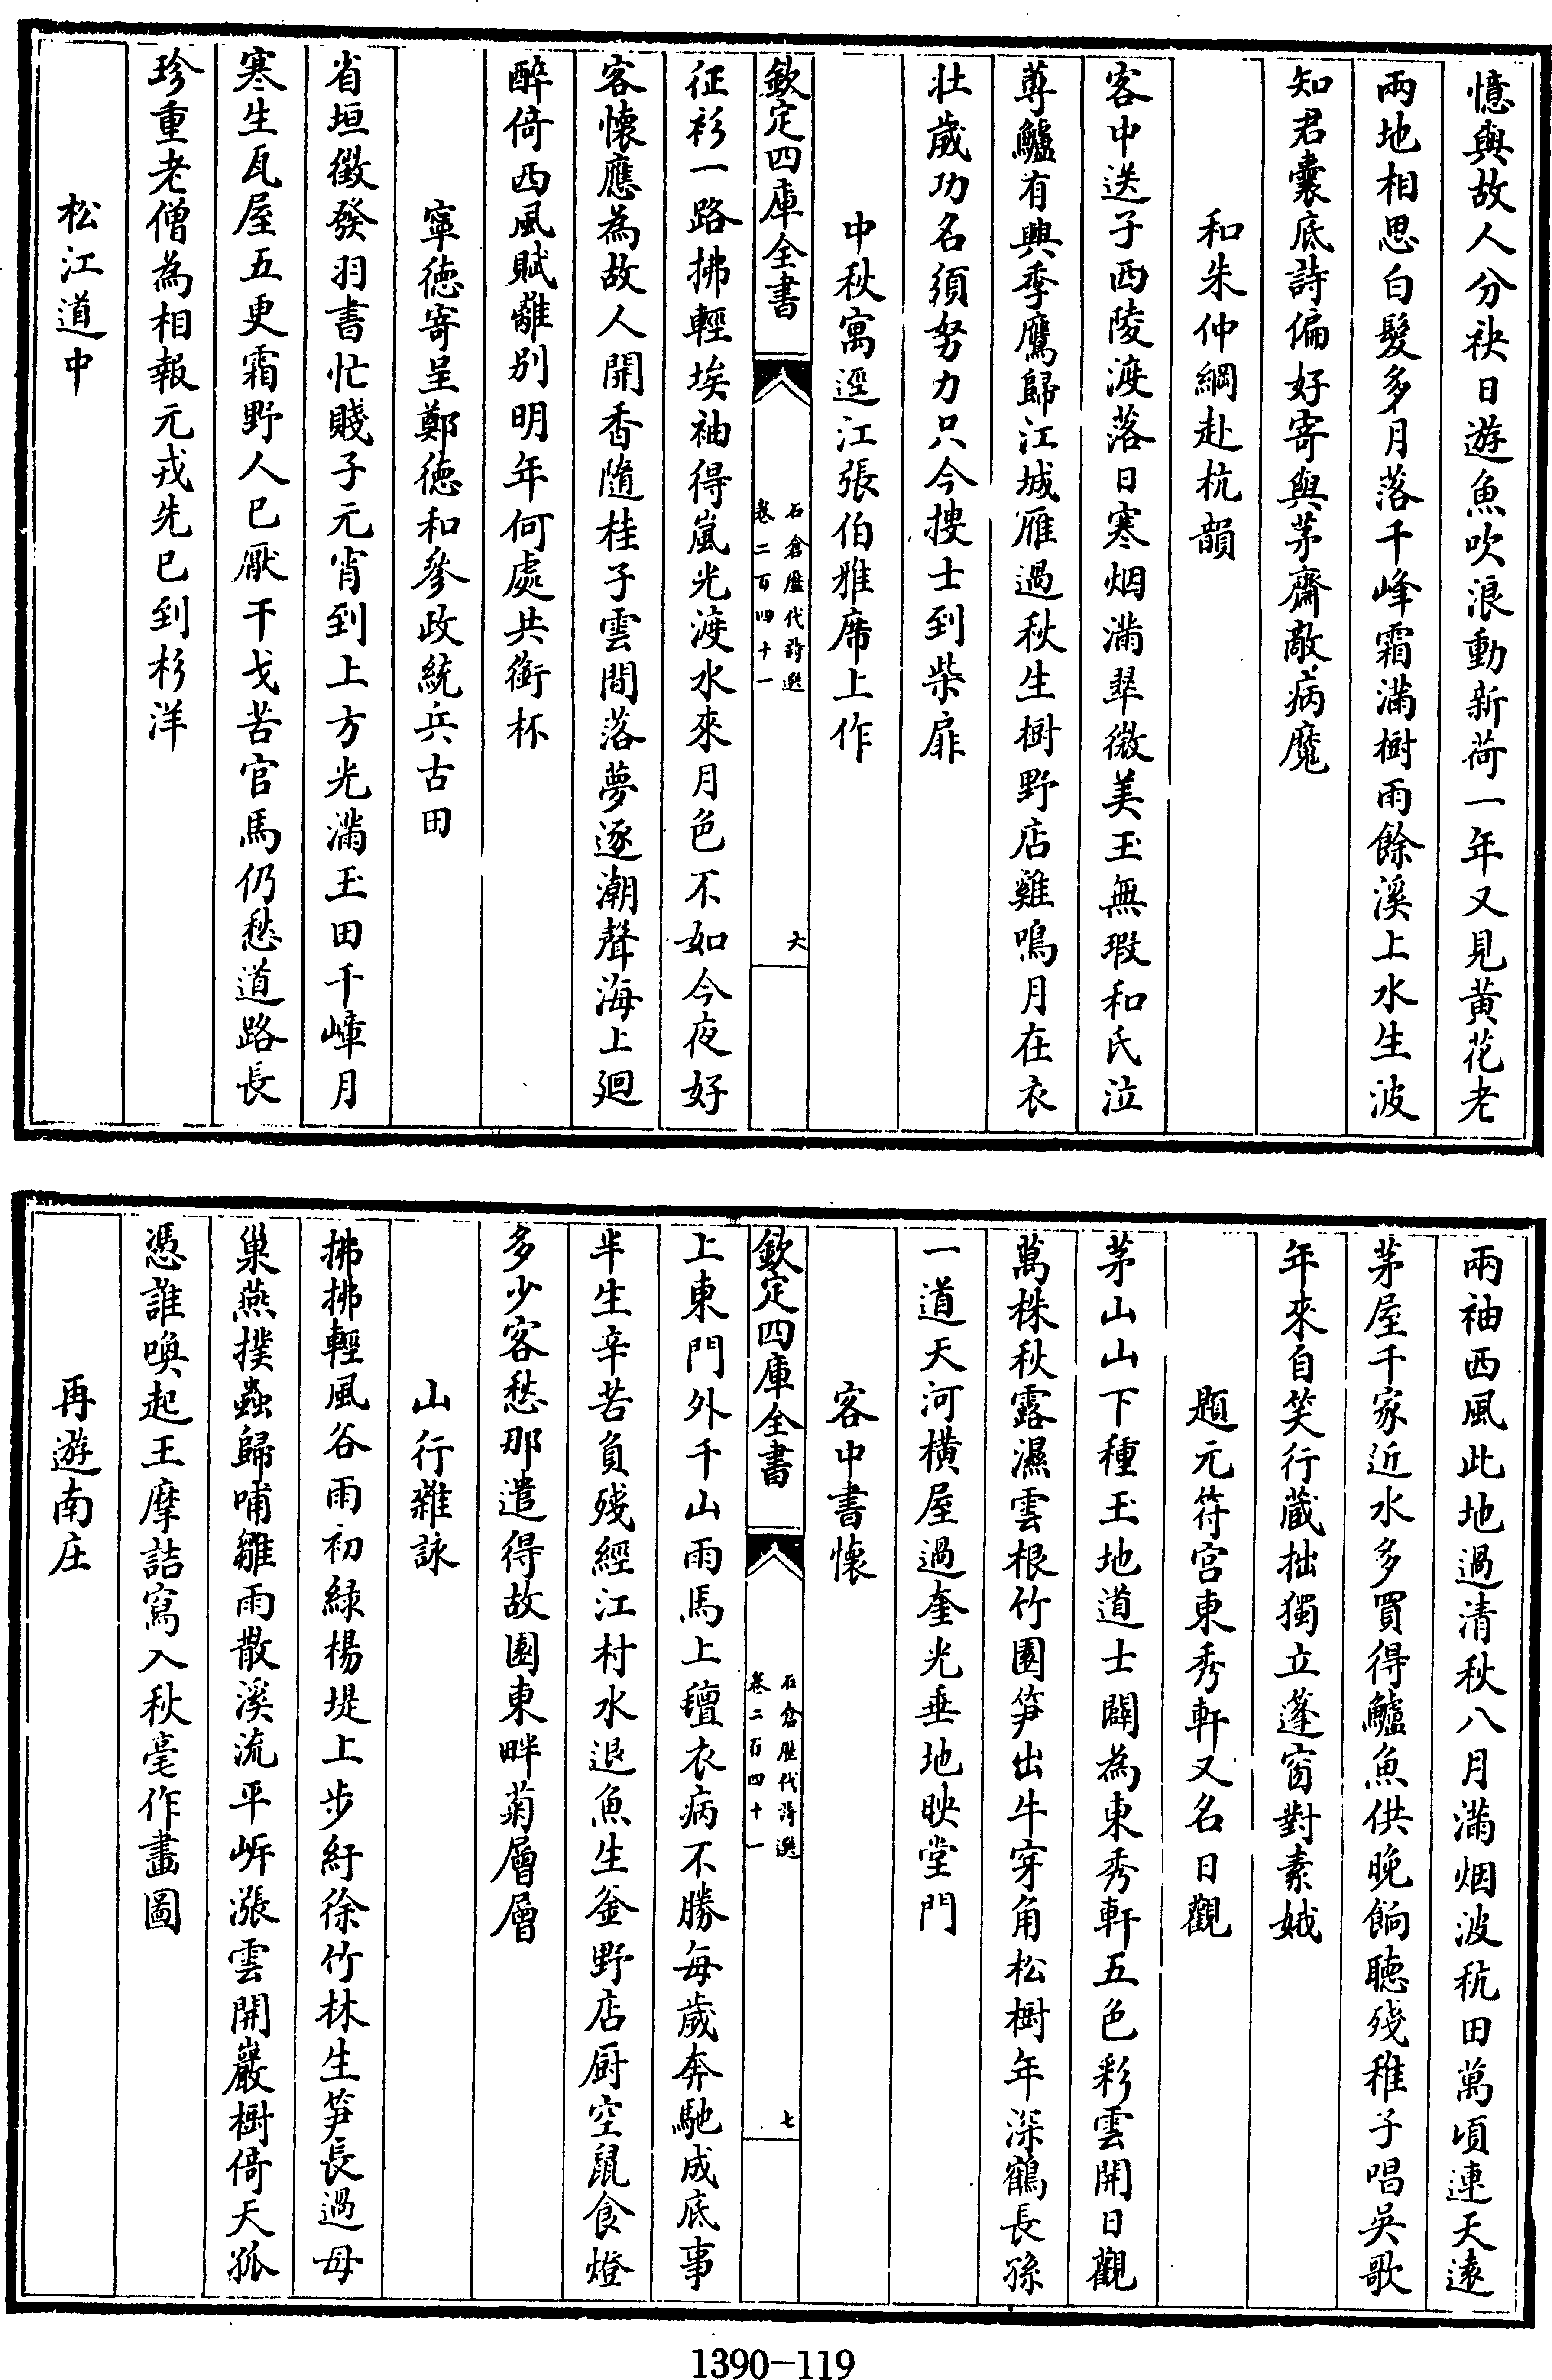 憶與故人分袂日遊魚吹浪動新荷一年又見黄花老
兩地相思白髮多月落千峰霜滿樹雨餘溪上水生波
知君囊底詩偏好寄與茅齋敵病魔
和朱仲綱赴杭韻
客中送子西陵渡落日寒烟滿翠微美玉無瑕和氏泣
蓴鱸有興季鷹歸江城雁過秋生樹野店雞鳴月在衣
壯歲功名須努力只今搜士到柴扉
中秋寓逕江張伯雅席上作
欽定四庫全書
石倉歷代詩選
卷二百四十一
六
征衫一路拂輕埃袖得嵐光渡水來月色不如今夜好
客懷應為故人開香隨桂子雲間落夢逐潮聲海上廻
醉倚西風賦離别明年何處共銜杯
寧徳寄呈鄭徳和參政統兵古田
省垣徵發羽書忙賤子元宵到上方光滿玉田千嶂月
寒生瓦屋五更霜野人已厭干戈苦官馬仍愁道路長
珍重老僧為相報元戎先已到杉洋
松江道中
兩袖西風此地過清秋八月滿烟波秔田萬頃連天遠
茅屋千家近水多買得鱸魚供晚餉聴殘稚子唱吳歌
年來自笑行蔵拙獨立蓬窗對素娥
題元符宫東秀軒又名日觀
茅山山下種玉地道士闢為東秀軒五色彩雲開日觀
萬株秋露濕雲根竹園笋出牛穿角松樹年深鶴長孫
一道天河横屋過奎光垂地映堂門
客中書懷
欽定四庫全書
石倉歷代詩選
卷二百四十一
七
上東門外千山雨馬上氊衣病不勝每歲奔馳成底事
半生辛苦負殘經江村水退魚生釜野店厨空鼠食燈
多少客愁那遣得故園東畔菊層層
山行雜詠
拂拂輕風谷雨初緑楊堤上步紆徐竹林生笋長過母
巢燕撲蟲歸哺雛雨散溪流平岍漲雲開巖樹倚天孤
憑誰喚起王摩詰寫入秋毫作畫圖
再遊南庄
1390-119